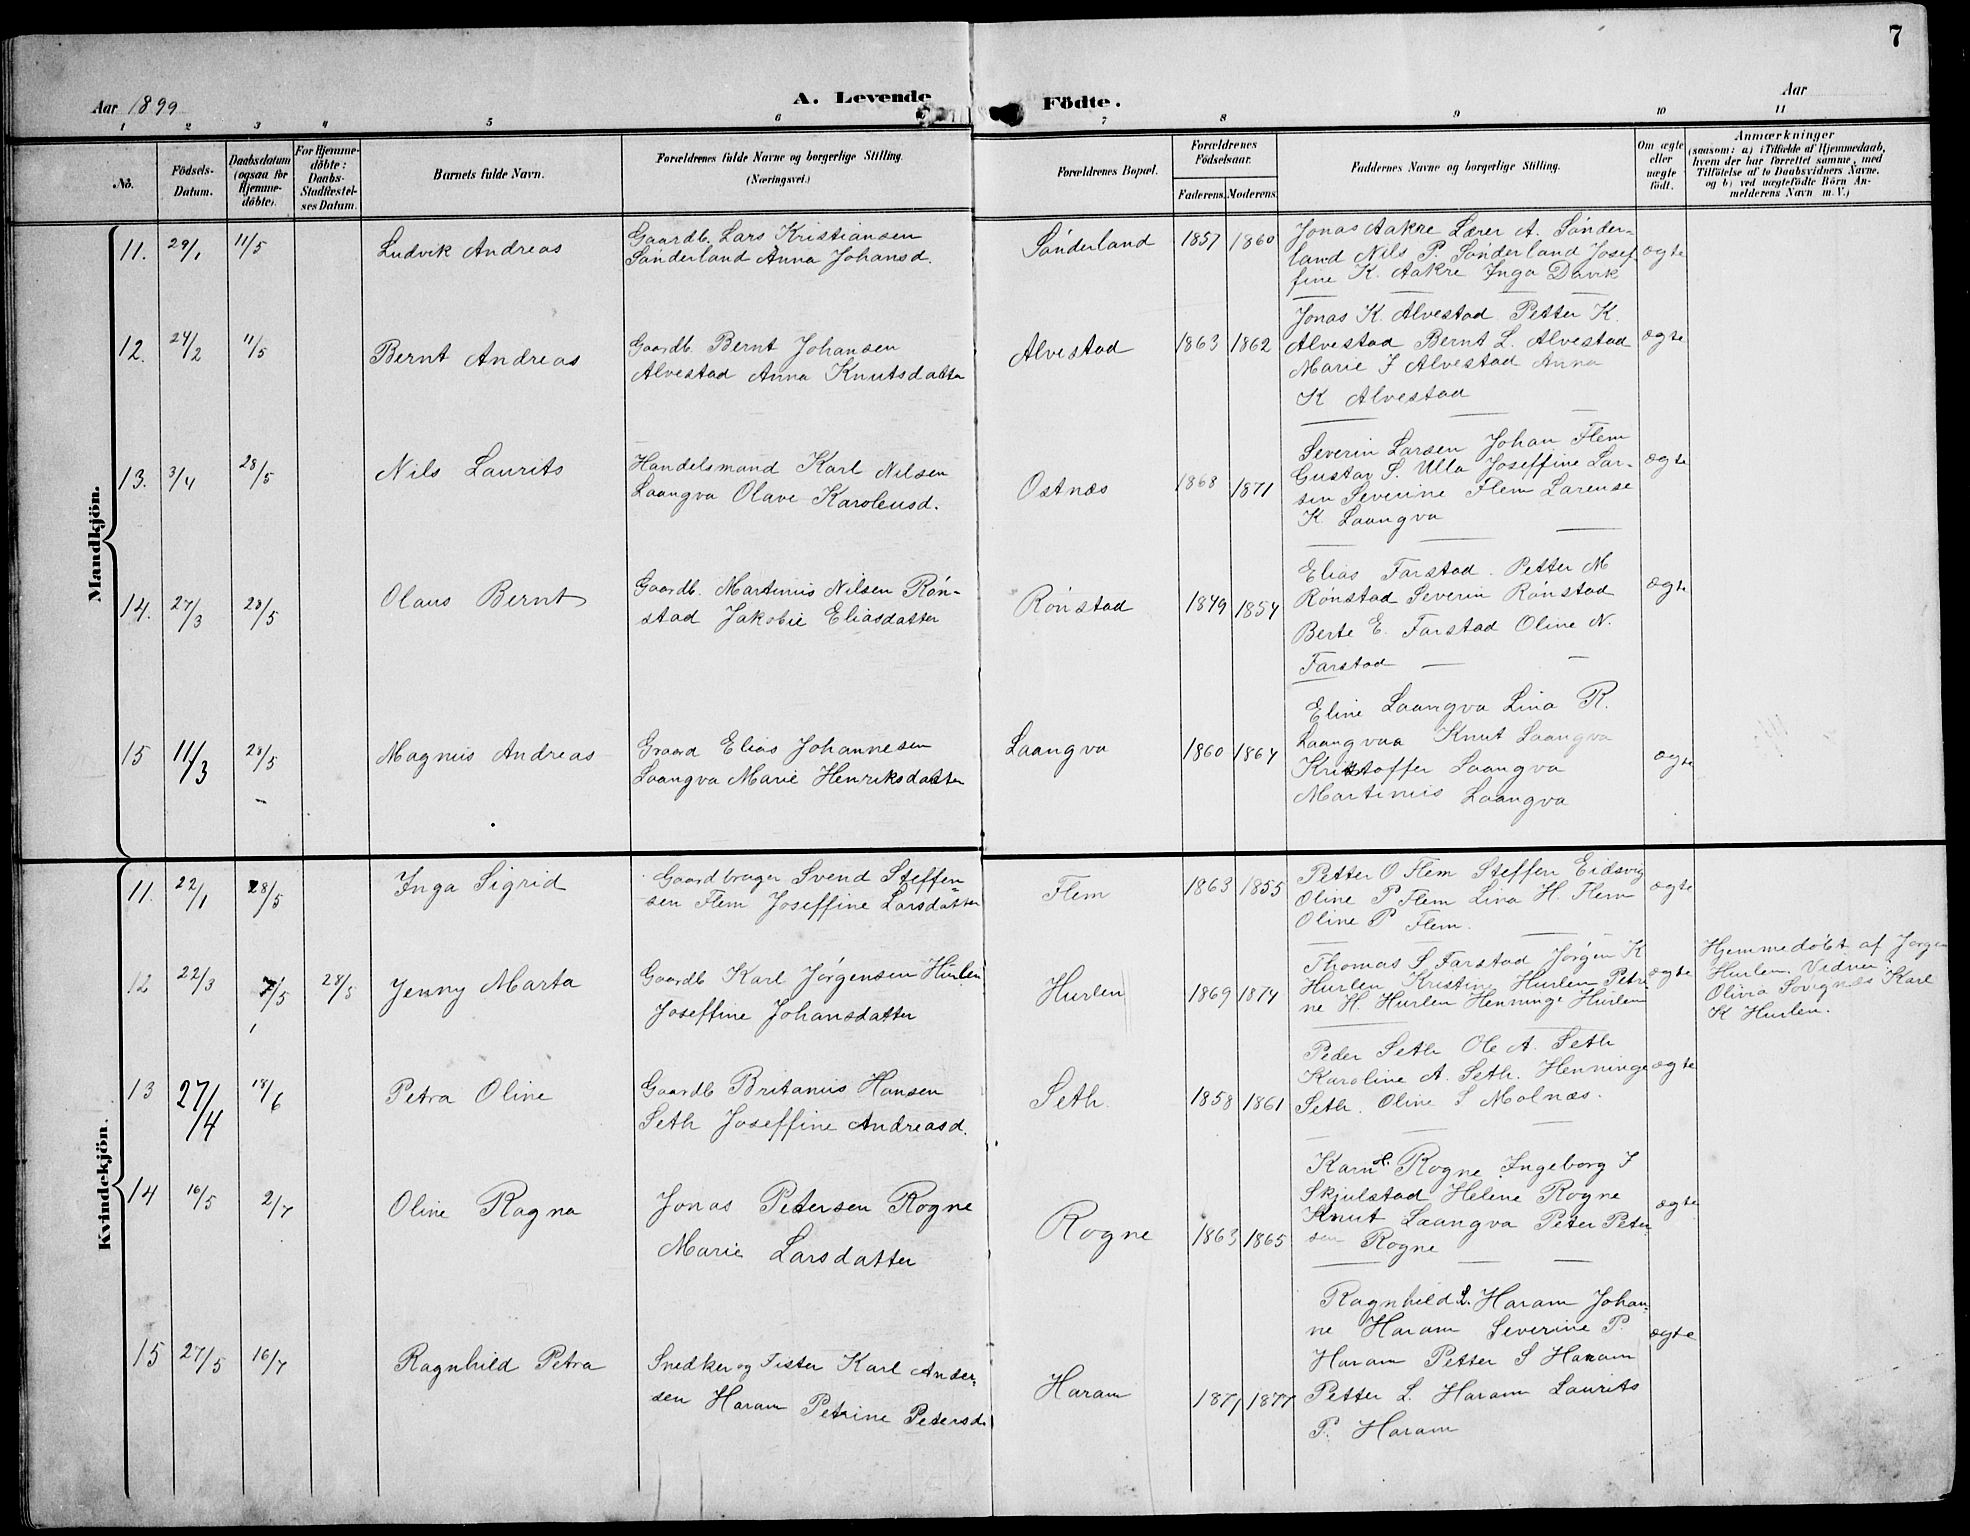 7
Aar 1899
A. Levende Födte.
Aar
1 2 3 4 5 6 7 8 9 10 11
No.
Födsels-Datum.
Daabsdatum (ogsaa for Hjemmedöbte).
For Hjemmedöbte: Daabs-Stadfæstelses Datum.
Barnets fulde Navn.
Forældrenes fulde Navne og borgerlige Stilling. (Næringsvei.)
Forældrenes Bopæl.
Forældrenes Födselsaar.
Faderens. Moderens.
Faddernes Navne og borgerlige Stilling.
Om ægte eller uægte födt.
Anmærkninger
(saasom: a) i Tilfælde af Hjemmedaab, hvem der har forrettet samme, med Tilföielse af to Daabsvidners Navne, og b) ved uægtefödte Börn Anmelderens Navn m. V.)
Mandkjön.
11. 29/1 11/5 Ludvik Andreas
Gaardb. Lars Kristiansen
Sønderland Anna Johansd.
Sønderland 1857 1860
Jonas Aakre Lærer A. Sønder-
land Nils P. Sønderland Josef-
fine K. Aakre Inga Davik
ægte
12. 24/2 11/5 Bernt Andreas
Gaardb. Bernt Johansen
Alvestad Anna Knutsdatter
Alvestad 1863 1862
Jonas K. Alvestad Petter K.
Alvestad Bernt L. Alvestad
Marie J Alvestad Anna
K Alvestad
ægte
13. 3/4 28/5 Nils Laurits
Handelsmand Karl Nilsen
Laangva Olave Karoleusd.
Ostnæs 1868 1871
Severin Larsen Johan Flem
Gustav S. Ulla Joseffine Lar-
sen Severine Flem Larense
K Laangva
ægte
14. 27/3 28/5 Olaus Bernt
Gaardb. Martinus Nilsen Røn-
stad Jakobie Eliasdatter
Rønstad 1849 1854
Elias Farstad. Petter M
Rønstad Severin Rønstad
Berte E. Farstad Oline N.
Farstad
ægte
15 11/3 28/5 Magnus Andreas
Graard Elias Johannesen
Laangva Marie Henriksdatter
Laangva 1860 1864
Eline Laangva Lina R.
Laangvaa Knut Laangva
Kristoffer Laangva
Martinus Laangva
ægte
Kvindekjön.
11. 22/1 28/5 Inga Sigrid
Gaardbruger Svend Steffen-
sen Flem Joseffine Larsdatter
Flem 1863 1855
Petter O Flem Steffen Eidsvig
Oline P Flem Lina H. Flem
Oline P Flem.
ægte
12 22/3 7/5 28/5 Jenny Marta
Gaardb Karl Jørgensen Hurlen
Joseffine Johansdatter
Hurlen 1869 1874
Thomas S Farstad Jørgen K
Hurlen Kristine Hurlen Petri-
ne H. Hurlen Henninge Hurlen
ægte
Hjemmedøbt af Jørgen
Hurlen. Vidner:
Olivia Søvignæs Karl
K Hurlen.
13 27/4 18/6 Petra Oline
Gaardb Britanius Hansen
Seth Joseffine Andreasd.
Seth. 1858 1861
Peder Seth Ole A. Seth
Karoline A. Seth. Henninge
Seth. Oline S Molnæs.
ægte
14 16/5 2/7 Oline Ragna
Jonas Petersen Rogne
Marie Larsdatter
Rogne 1863 1865
Rogne Ingeborg J
Skjulstad Heline Rogne
Knut Laangva Peter Peter-
sen Rogne
ægte
15 27/5 16/7 Ragnhild Petra
Snedker og Fisker Karl Ander-
sen Haram Petrine Petersd.
Haram 1871 1877
Ragnhild L. Haram Johan-
ne Haram Severine P.
Haram Petter S Haram
Petter L. Haram Laurits
P. Haram
ægte